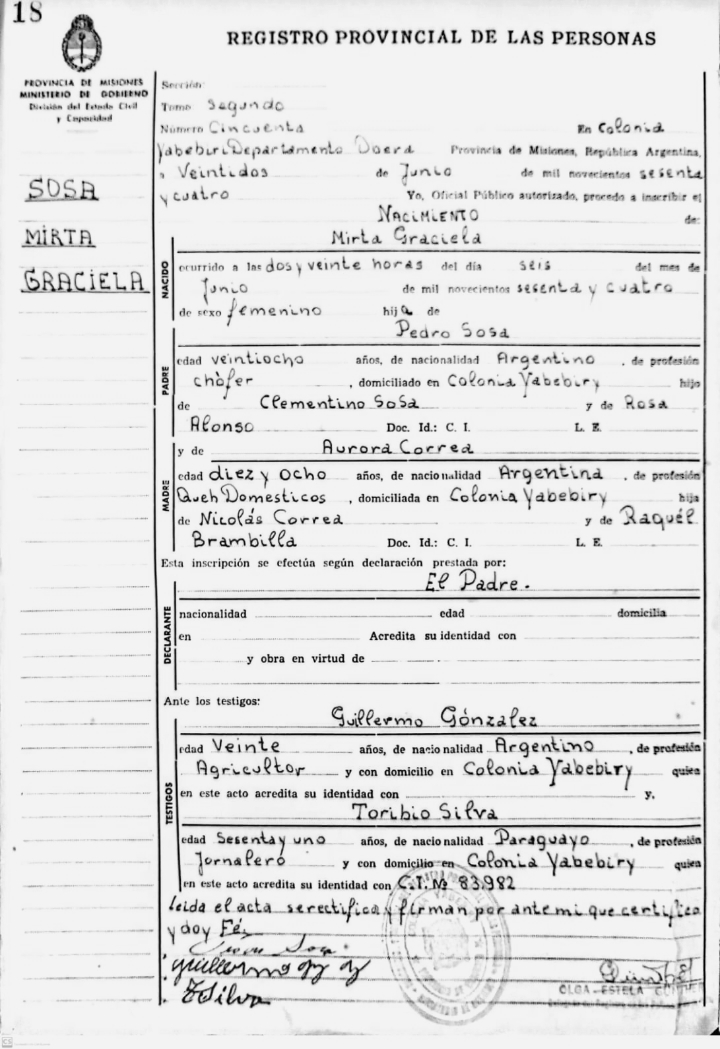 18
REGISTRO PROVINCIAL DE LAS PERSONAS
PROVINCIA DE MISIONES
MINISTERIO DE GOBIERNO
División del Estado Civil
y Capacidad
SOSA
MIRTA
GRACIELA
Sección:
Tomo Segundo
Número Cincuenta En Colonia
Yabebiri Departamento Provincia de Misiones, República Argentina,
a Veintidos de Junio de mil novecientos sesenta
y cuatro Yo, Oficial Público autorizado, procedo a inscribir el
NACIMIENTO de:
Mirta Graciela
NACIDO
ocurrido a las dos y veinte horas del día seis del mes de
Junio de mil novecientos sesenta y cuatro
de sexo femenino hija de
Pedro Sosa
PADRE
edad veintiocho años, de nacionalidad Argentino, de profesión
chófer, domiciliado en Colonia Yabebiry hijo
de Clementino Sosa y de Rosa
Alonso Doc. Id.: C. I. L. E.
y de Aurora Correa
MADRE
edad diez y ocho años, de nacionalidad Argentina, de profesión
Queh Domesticos, domiciliada en Colonia Yabebiry hija
de Nicolás Correa y de Raquél
Brambilla Doc. Id.: C. I. L. E.
Esta inscripción se efectúa según declaración prestada por:
El Padre.
DECLARANTE
nacionalidad edad domicilia
en Acredita su identidad con
y obra en virtud de
Ante los testigos:
Guillermo Gónzalez
TESTIGOS
edad Veinte años, de nacionalidad Argentino, de profesión
Agricultor y con domicilio en Colonia Yabebiry quien
en este acto acredita su identidad con y.
Toribio Silva
edad Sesenta y uno años, de nacionalidad Paraguayo, de profesión
Jornalero y con domicilio en Colonia Yabebiry quien
en este acto acredita su identidad con C.I. Nº 83.982
Leida el acta se rectifica y firman por ante mi que certifico
y doy Fé.
Guillermo
T Silva
OLGA ESTELA